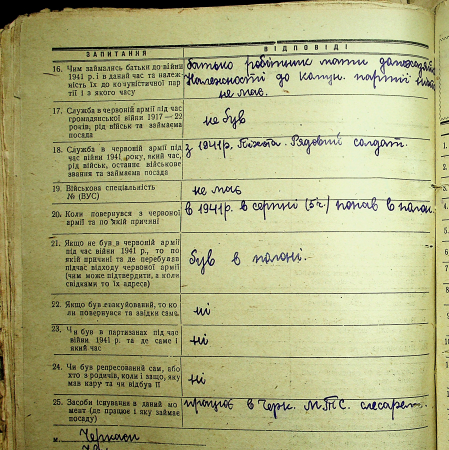 ЗАПИТАННЯ
ВІДПОВІДІ
16. Чим займались батьки до війни
1941 р. і в даний час та належ-
ність їх до комуністичної пар-
тії і з якого часу
батько робітник мати домохоз.
Належності до комун. партії
не має.
17. Служба в червоній армії під час
громадянської війни 1917—22
років, рід військ та займаєма
посада
не був
18. Служба в червоній армії під
час війни 1941 року, який час,
рід військ, останнє військове
звання та займаєма посада
з 1941р. Піхота. Рядовий солдат.
19. Військова спеціальність
№ (ВУС)
не має
20. Коли повернувся з червоної
армії та по якій причині
в 1941р. в серпні попав в полон.
21. Якщо не був в червоній армії
під час війни 1941 р., то по
якій причині та де перебував
підчас відходу червоної армії
(чим може підтвердити, а коли
свідками то їх адреса)
був в полоні.
22. Якщо був евакуйований, то ко-
ли повернувся та звідки сама
ні
23. Чи був в партизанах під час
війни 1941 р. та де саме і
який час
ні
24. Чи був репресований сам, або
хто з родичів, коли і защо, яку
мав кару та чи відбув її
ні
25. Засоби існування в даний мо-
мент (де працює і яку займає
посаду)
працює в Черк. М.Т.С. слесарем.
м. Черкаси